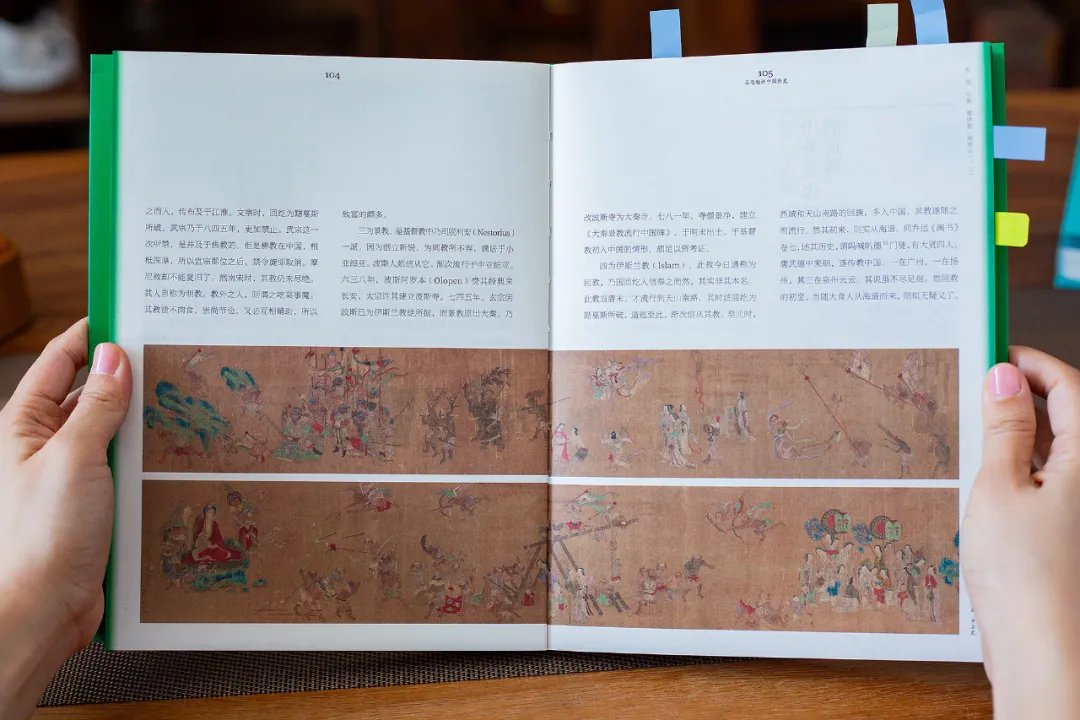 104
之而入，传布及于江淮。文宗时，回纥为黠戛斯
所破。武宗乃于八四五年，更加禁止。武宗这一
次所禁，是并及于佛教的。但是佛教在中国，根
柢深厚，所以宣宗即位之后，禁令旋即取消。摩
尼教却不能复旧了。然南宋时，其教仍未尽绝。
其人自称为明教。教外之人，则谓之吃菜事魔。
其教徒不肉食，崇尚节俭，又必互相辅助，所以
致富的颇多。
三为景教，是基督教中乃司脱利安（Nestorius）
一派。因为创立新说，为同教所不容，谪居于小
亚细亚。波斯人颇信从它。渐次流行于中亚细亚。
六三八年，波斯阿罗本（Olopen）赍其经典来
长安。太宗许其建立波斯寺。七四五年，玄宗因
波斯已为伊斯兰教徒所据，而景教原出大秦，乃
105
吕思勉讲中国历史
改波斯寺为大秦寺。七八一年，寺僧景净，建立
《大秦景教流行中国碑》，于明末出土。于基督
教初入中国的情形，颇足以资考证。
四为伊斯兰教（Islam）。此教今日通称为
回教，乃因回纥人信奉之而然，其实非其本名。
此教当唐末，才流行到天山南路。其时适回纥为
黠戛斯所破，遁逃至此，渐次信从其教。至元时，
西域和天山南路的回族，多入中国，其教遂随之
而流行。然其初来，则实从海道。何乔远《闽书》
卷七，述其历史，谓吗喊叭德门徒，有大贤四人，
唐武德中来朝，遂传教中国。一在广州，一在扬
州，其三在泉州云云。其说虽不尽足据，然回教
的初至，当随大食人从海道而来，则似无疑义了。